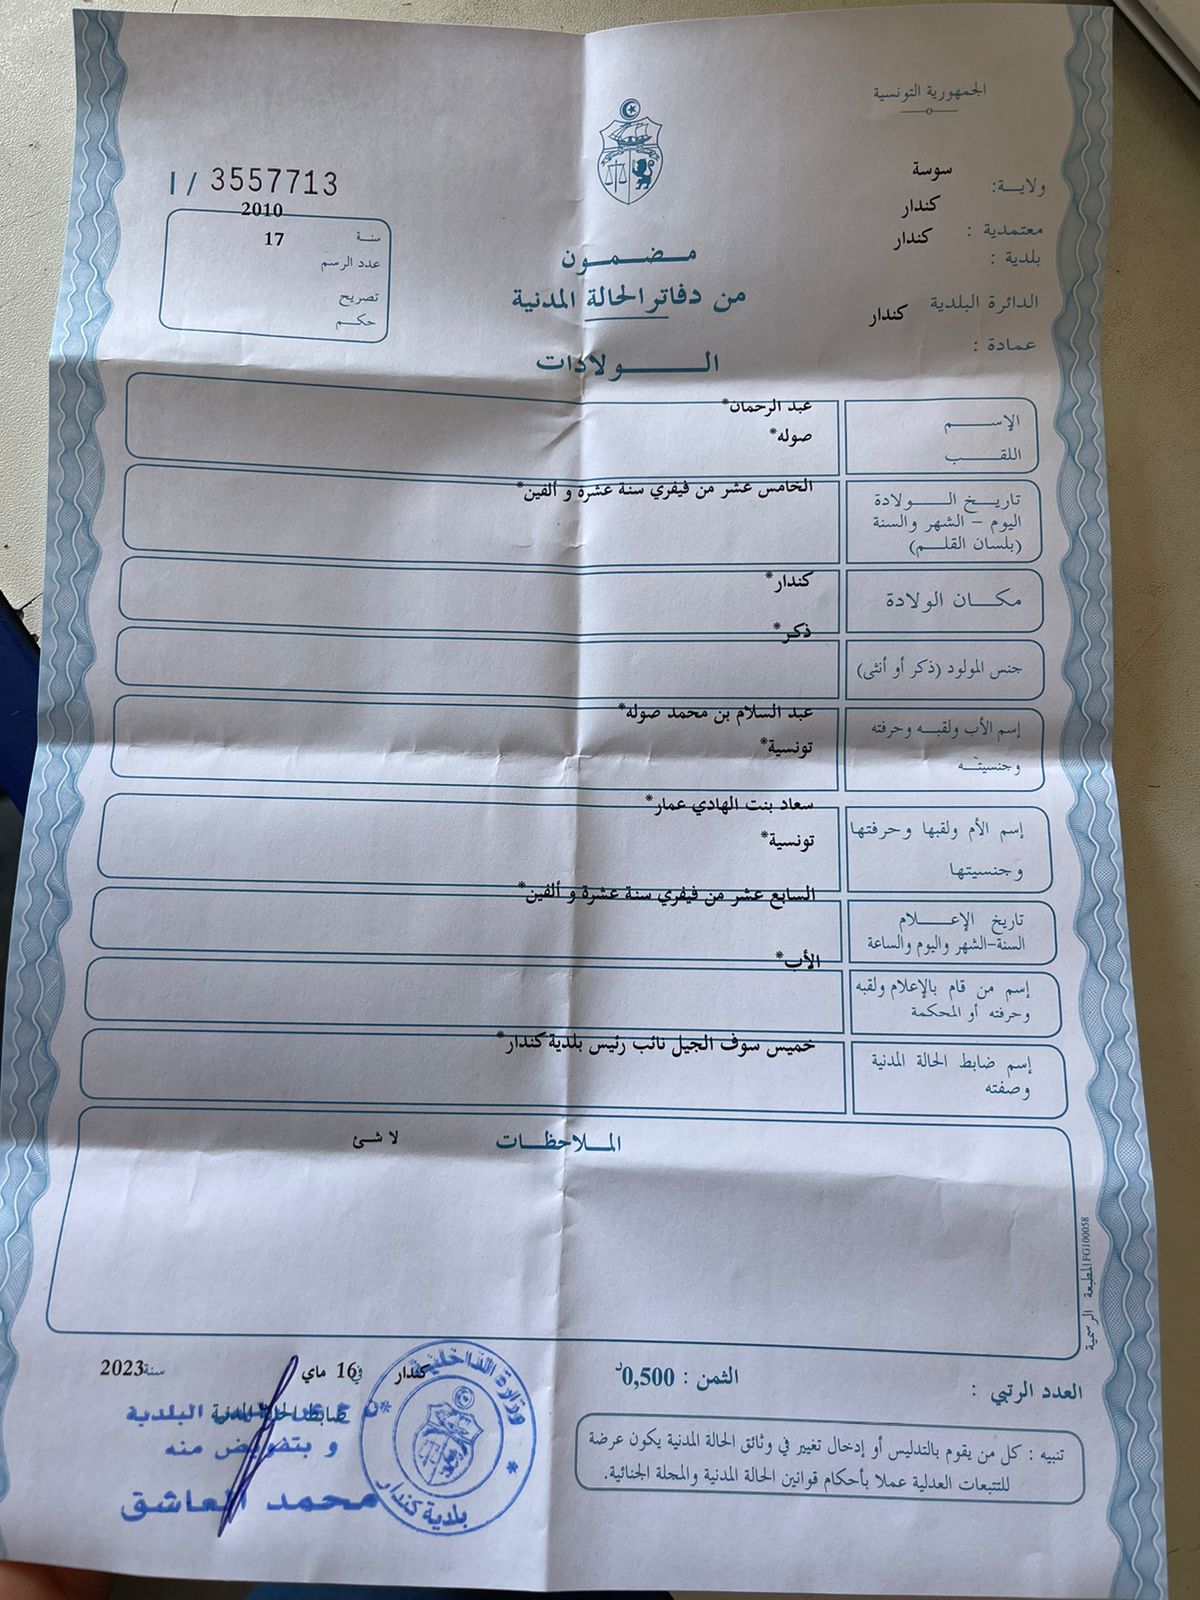 الجمهورية التونسية
ولاية: سوسة
معتمدية : كندار
بلدية : كندار
الدائرة البلدية كندار
عمادة :
I / 3557713
سنة 2010
عدد الرسم 17
تصريح
حكم
مضمون
من دفاتر الحالة المدنية
الولادات
الإسم عبد الرحمان*
اللقب صوله*
تاريخ الولادة الخامس عشر من فيفري سنة عشرة و ألفين*
اليوم - الشهر والسنة
(بلسان القلم)
مكان الولادة كندار*
جنس المولود (ذكر أو أنثى) ذكر*
إسم الأب ولقبه وحرفته عبد السلام بن محمد صوله*
وجنسيته تونسية*
إسم الأم ولقبها وحرفتها سعاد بنت الهادي عمار*
وجنسيتها تونسية*
تاريخ الإعلام السابع عشر من فيفري سنة عشرة و ألفين*
السنة-الشهر واليوم والساعة
إسم من قام بالإعلام ولقبه الأب*
وحرفته أو المحكمة
إسم ضابط الحالة المدنية خميس سوف الجيل نائب رئيس بلدية كندار*
وصفته
الملاحظات لا شئ
المطبعة الرسمية FG100058
العدد الرتبي :
الثمن : 0,500د
كندار في 16 ماي سنة 2023
ضابط الحالة المدنية
البلدية
و بتفويض منه
محمد العاشق
وزارة الداخلية
بلدية كندار
تنبيه : كل من يقوم بالتدليس أو إدخال تغيير في وثائق الحالة المدنية يكون عرضة
للتتبعات العدلية عملا بأحكام قوانين الحالة المدنية والمجلة الجنائية.